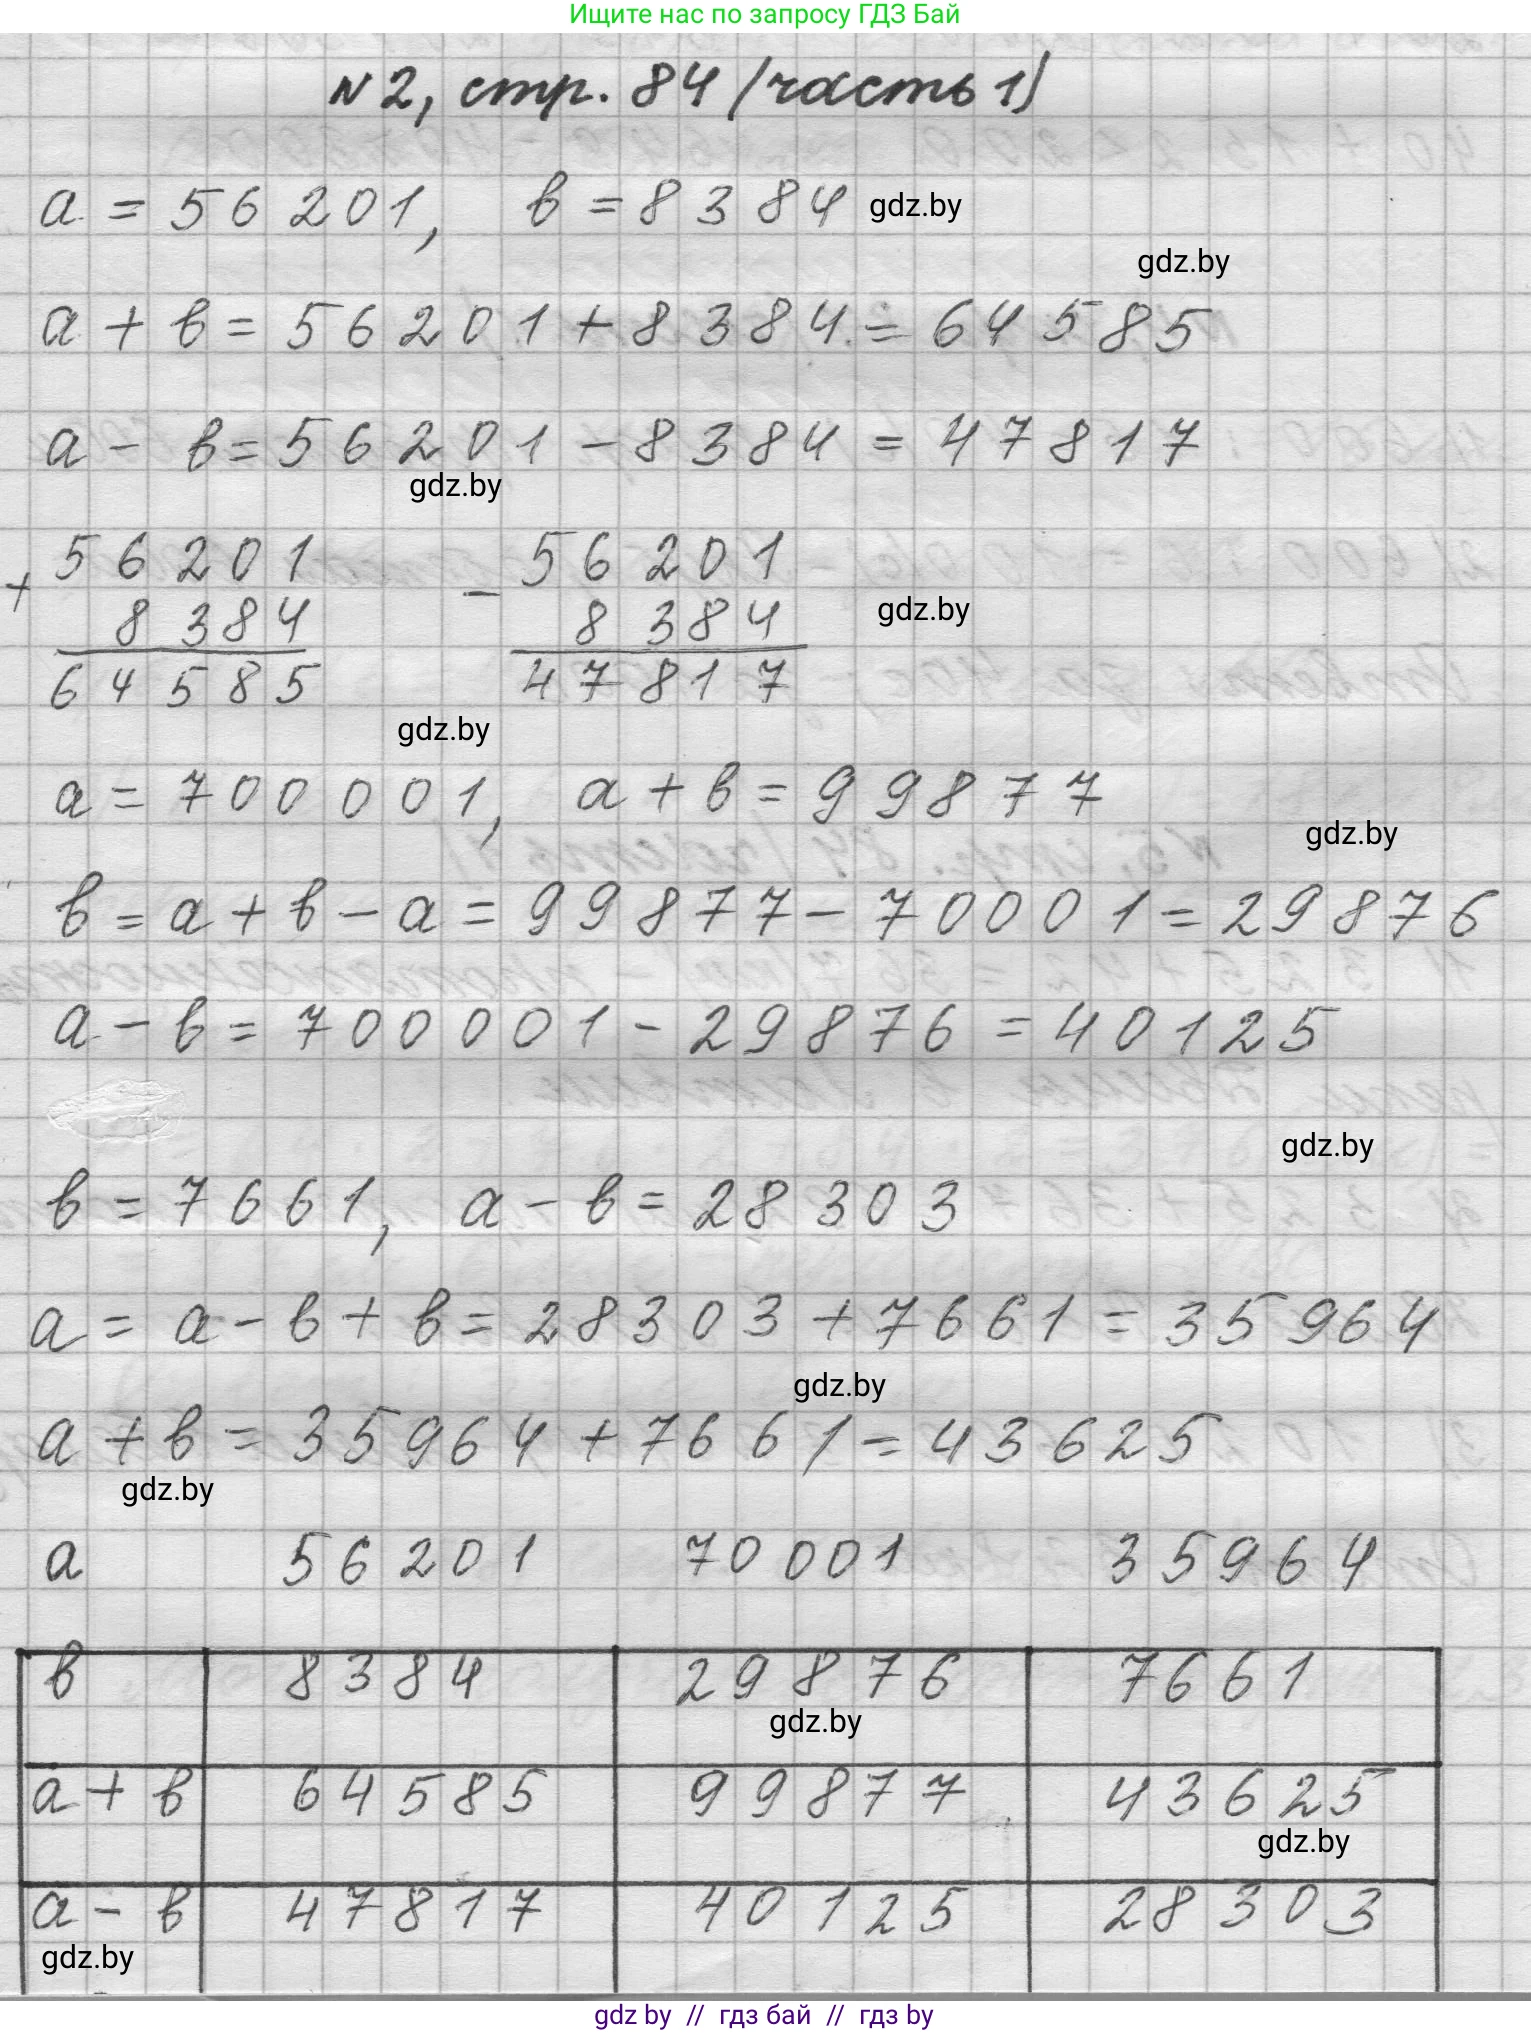 Ищите нас по запросу ГДЗ Бай
№2, стр. 84 (часть 1)
a = 56 201, в = 8 384 gdz.by
gdz.by
a + в = 56 201 + 8 384 = 64 585
a - в = 56 201 - 8 384 = 47 817
gdz.by
+ 56 201 - 56 201
8 384 8 384 gdz.by
64 585 47 817
gdz.by
a = 700 001, a + в = 99 877
gdz.by
в = a + в - a = 99 877 - 70 001 = 29 876
a - в = 700 001 - 29 876 = 40 125
gdz.by
в = 7 661, a - в = 28 303
a = a - в + в = 28 303 + 7 661 = 35 964
gdz.by
a + в = 35 964 + 7 661 = 43 625
gdz.by
a 56 201 70 001 35 964
в 8 384 29 876 7 661
gdz.by
a + в 64 585 99 877 43 625
gdz.by
a - в 47 817 40 125 28 303
gdz.by
gdz by // гдз бай // гдз by